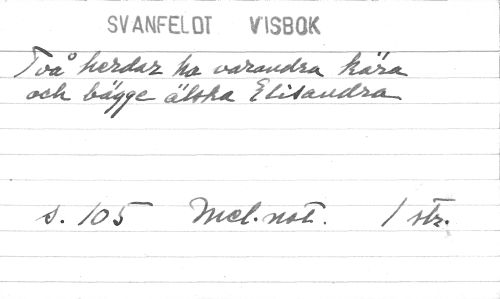 SVANFELDT VISBOK
Två herdar ha varandra kära
och bägge älska Elisandra
s. 105 Mel.not. 1 str.